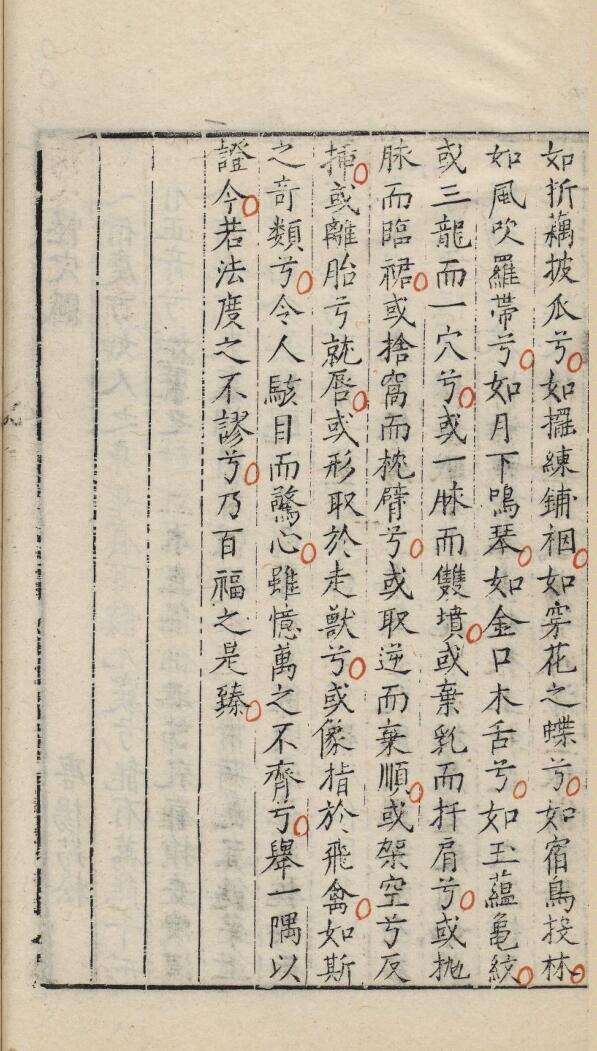 如折藕披瓜兮如擺練鋪裀如穿花之蝶兮如宿鳥投林
如風吹羅帶兮如月下鳴琴如金口木舌兮如玉蘊龜紋
或三龍而一穴兮或一脉而雙墳或棄乳而扦肩兮或抛
脉而臨裙或捨窩而枕臂兮或取逆而棄順或架空兮反
揷或離胎兮就唇或形取於走獸兮或像指於飛禽如斯
之竒類兮令人駭目而驚心雖億萬之不齊兮舉一隅以
證今若法度之不謬兮乃百福之是臻